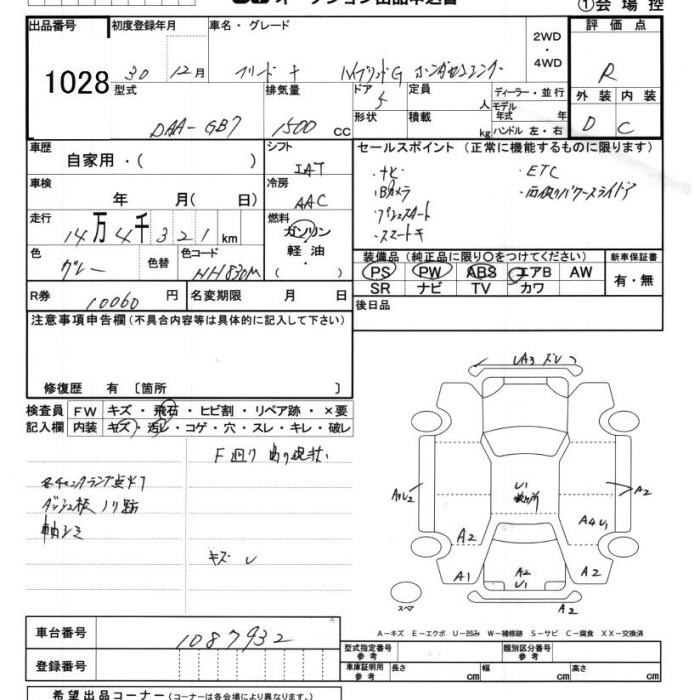 オークション出品申込書
①会場控
出品番号
1028
初度登録年月
30 12月
車名・グレード
フリード+ ハイブリッドG ホンダセンシング
2WD
・
4WD
評価点
R
外装 内装
D C
型式
DAA-GB7
排気量
1500 cc
ドア
5
形状
定員
人
積載
kg
ディーラー・並行
モデル年式 年
ハンドル 左・右
車歴
自家用・( )
シフト
IAT
車検
年 月( 日)
冷房
AAC
走行
14万4千321km
燃料
ガソリン
軽油
・
( )
色
グレー
色替
色コード
NH830M
R券
10060円
名変期限 月 日
セールスポイント (正常に機能するものに限ります)
・ナビ ・ETC
・Bカメラ ・両側パワースライドドア
・プッシュスタート
・スマートキー
装備品(純正品に限り○をつけてください)
PS PW ABS エアB AW
SR ナビ TV カワ
新車保証書
有・無
後日品
注意事項申告欄(不具合内容等は具体的に記入して下さい)
修復歴 有 〔箇所 〕
検査員記入欄
FW キズ・飛石・ヒビ割・リペア跡・×要
内装 キズ・汚レ・コゲ・穴・スレ・キレ・破レ
F廻り 現状
各チェックランプ点灯
ダッシュ板ノリ跡
軸シミ
キズ U
A3 ズレ
A1U2
U1
A2
A4U1
A2
A2
A1
A2
U1
A2
A2
スペア
A−キズ E−エクボ U−凹み W−補修跡 S−サビ C−腐食 XX−交換済
車台番号
1087932
登録番号
型式指定番号 参考
類別区分番号 参考
車庫証明用 参考
長さ cm 幅 cm 高さ cm
希望出品コーナー(コーナーは各会場により異なります。)